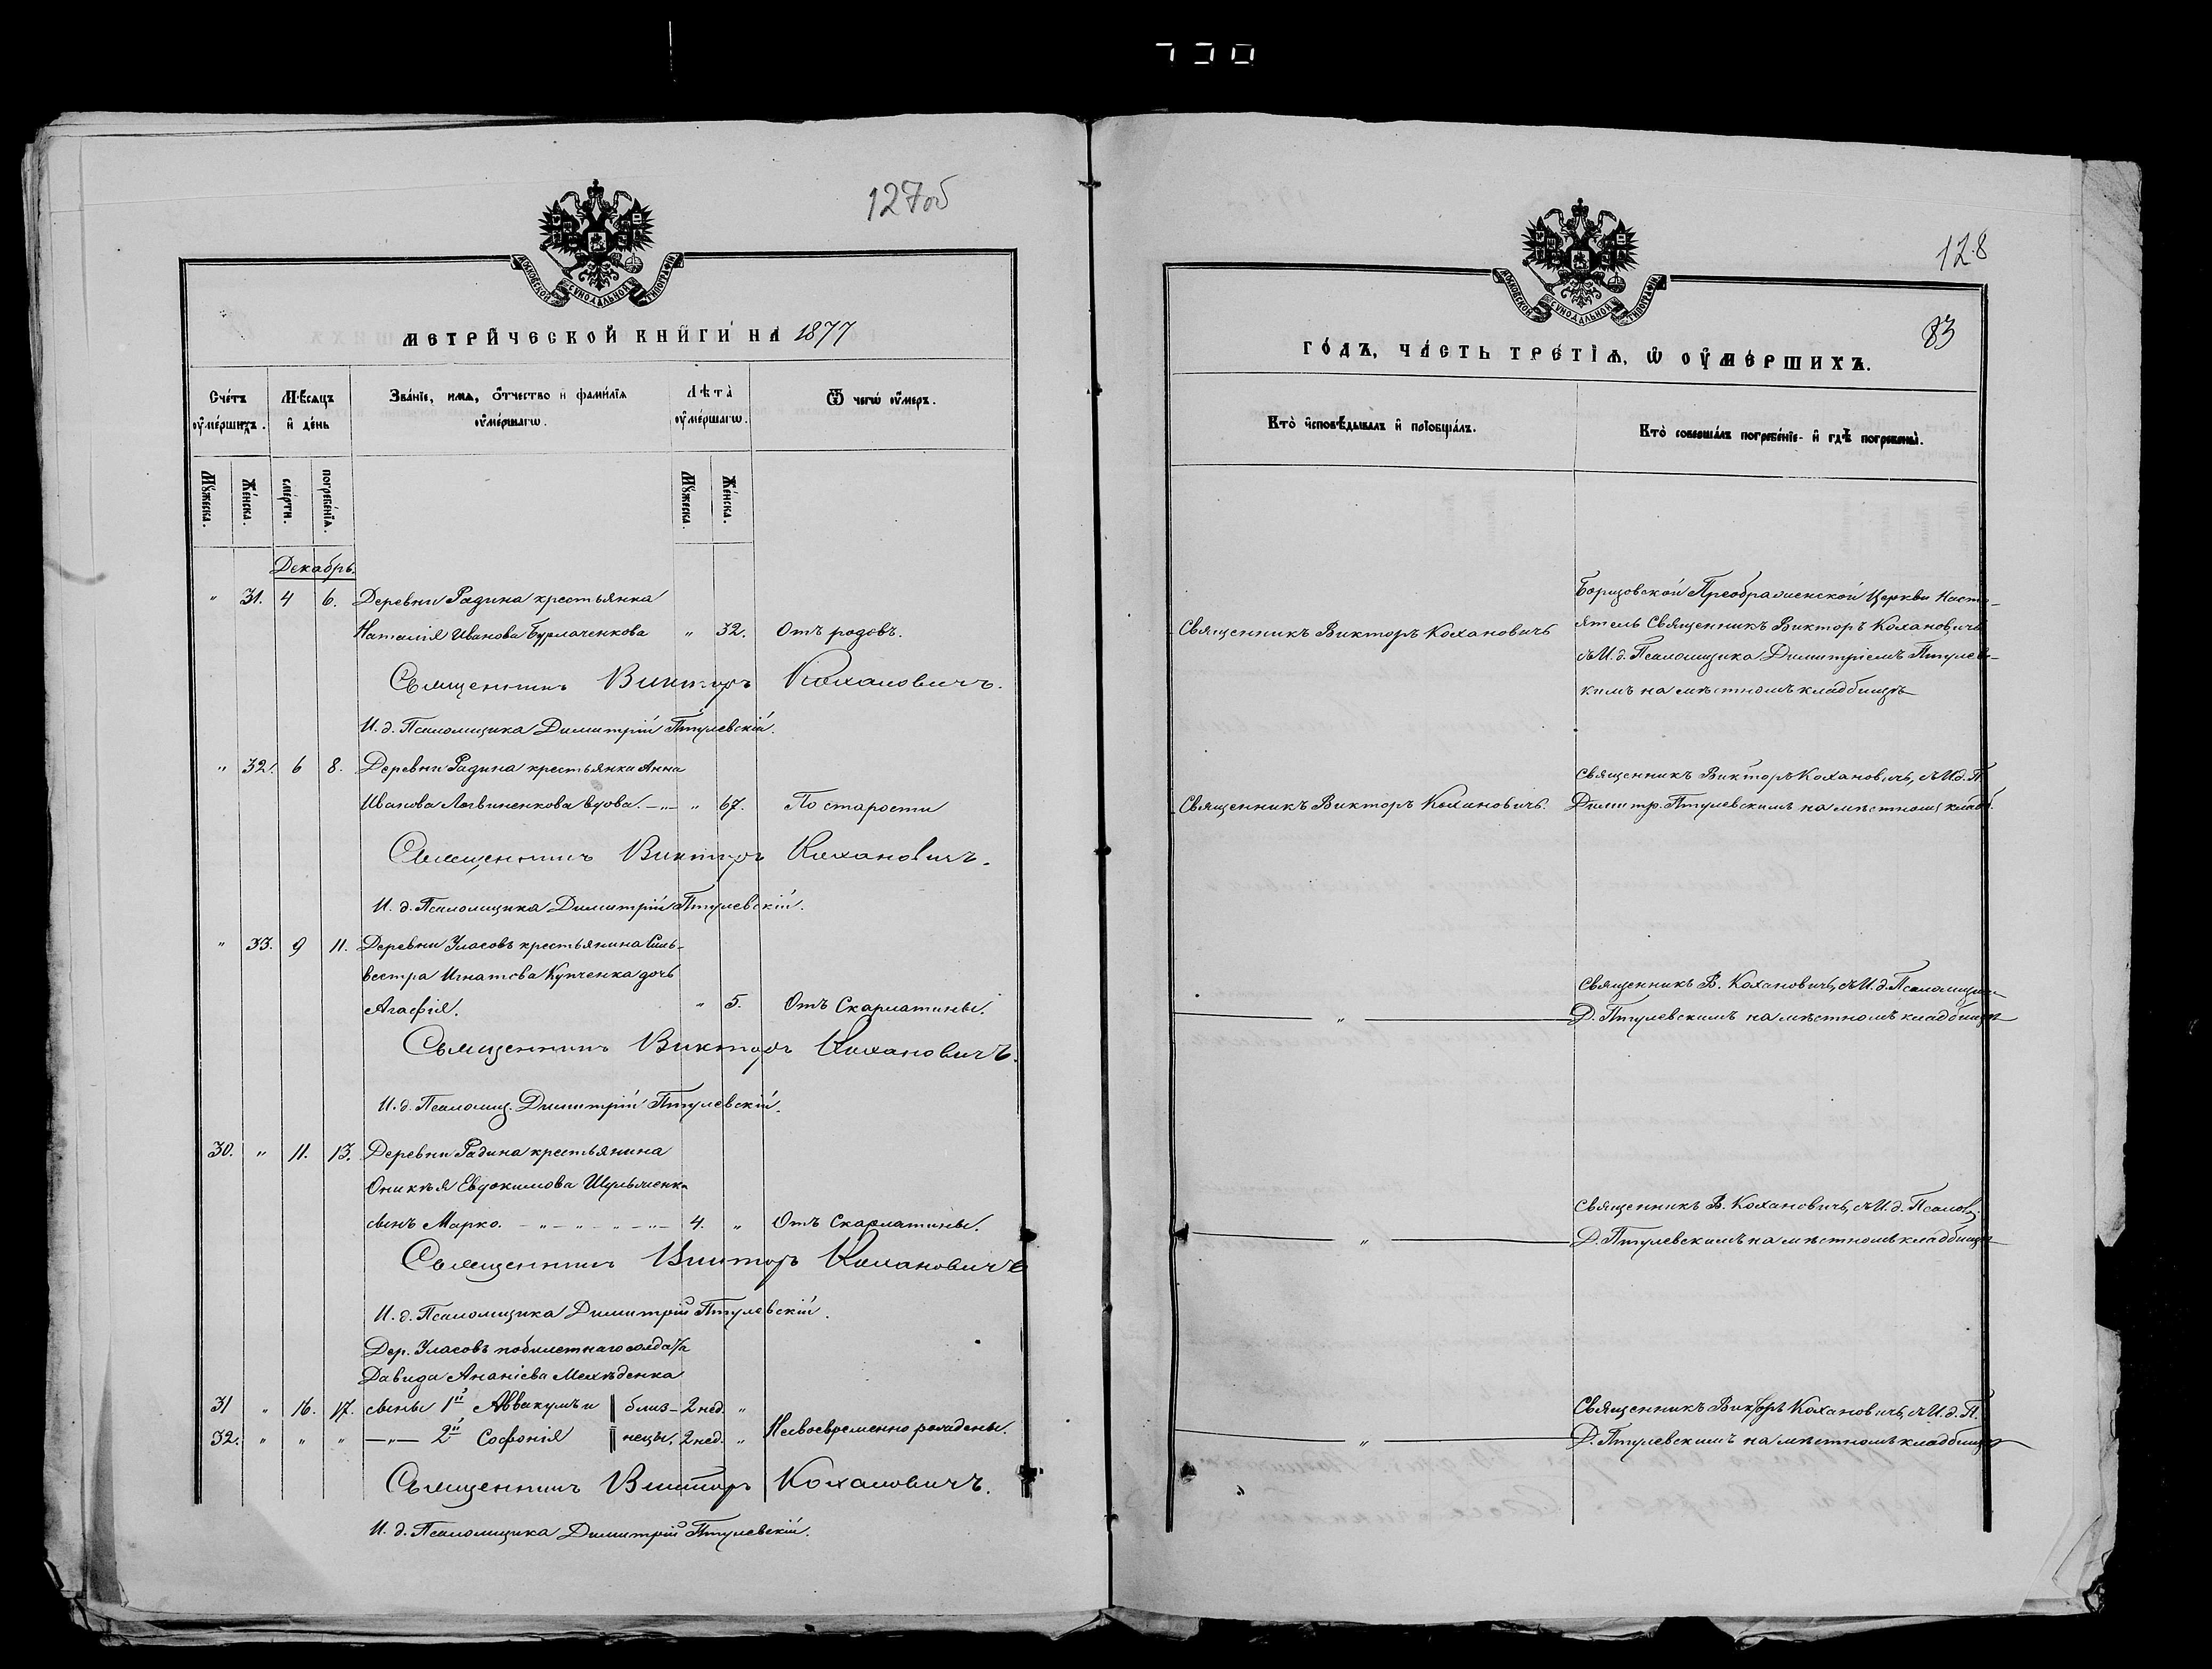 127об
МОСКОВСКОЙ СѴНОДАЛЬНОЙ ТИПОГРАФІИ
МЕТРИЧЕСКОЙ КНИГИ НА 1877
Счетъ оумершихъ.
Мѣсяцъ и день
Званіе, имя, отчество и фамилія оумершагω.
Лѣта оумершагω.
Ѿ чегω оумеръ.
Мужеска.
Женска.
смерти.
погребенія.
Мужеска.
Женска.
Декабрь.
" 31. 4 6. Деревни Радина крестьянка
Наталія Иванова Бурлаченкова " 32. Отъ родовъ.
Священникъ Викторъ Кохановичъ.
И. д. Псаломщика Димитрій Птулевскій.
" 32. 6 8. Деревни Радина крестьянка Анна
Иванова Логвиненкова вдова. " 67. По старости
Священникъ Викторъ Кохановичъ.
И. д. Псаломщика Димитрій Птулевскій.
" 33. 9 11. Деревни Уласовъ крестьянина Силь-
вестра Игнатова Купченка дочь
Агафія. " 5. Отъ Скарлатины.
Священникъ Викторъ Кохановичъ.
И. д. Псаломщ. Димитрій Птулевскій.
30. " 11. 13. Деревни Радина крестьянина
Оникѣя Евдокимова Шульженка
сынъ Марко. 4. " Отъ Скарлатины.
Священникъ Викторъ Кохановичъ
И. д. Псаломщика Димитрій Птулевскій.
Дер. Уласовъ побилетнаго солдата
Давида Ананіева
31 " 16. 17. сыны 1й Аввакумъ и близ- 2 нед. "
32. " " " 2й Софонія нецы. 2 нед. " Несвоевременно рождены.
Священникъ Викторъ Кохановичъ.
И. д. Псаломщика Димитрій Птулевскій.
128
МОСКОВСКОЙ СѴНОДАЛЬНОЙ ТИПОГРАФІИ
83
ГОДЪ, ЧАСТЬ ТРЕТІЯ, Ѡ ОУМЕРШИХЪ.
Кто исповѣдывалъ и пріобщалъ.
Кто совершалъ погребеніе и гдѣ погребены.
Священникъ Викторъ Кохановичъ
Борщовской Преображенской Церкви Насто-
ятель Священникъ Викторъ Кохановичъ
съ И. д. Псаломщика Димитріемъ Птулевс-
кимъ на мѣстномъ кладбищѣ
Священникъ Викторъ Кохановичъ.
Священникъ Викторъ Кохановичъ, съ И. д. П.
Димитр. Птулевскимъ на мѣстномъ кладб.
"
Священникъ В. Кохановичъ, съ И. д. Псаломщика
Д. Птулевскимъ на мѣстномъ кладбищѣ
"
Священникъ В. Кохановичъ, съ И. д. Псалом.
Д. Птулевскимъ на мѣстномъ кладбищѣ
"
Священникъ Викторъ Кохановичъ, съ И. д. П.
Д. Птулевскимъ на мѣстномъ кладбищѣ